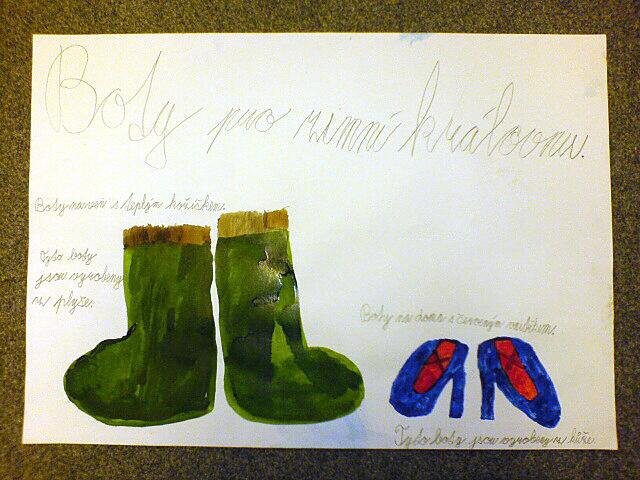 Boty pro zimní královnu.
Boty na ven s teplým kožíškem.
Tyto boty
jsou vyrobeny
z plyše.
Boty na doma s červeným
Tyto boty jsou vyrobeny z kůže.